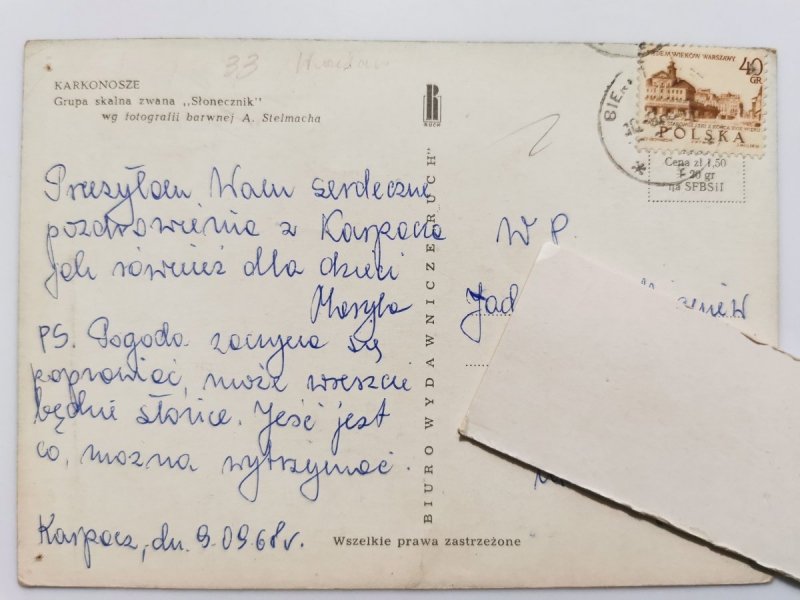 33 Wrocław
KARKONOSZE
Grupa skalna zwana „Słonecznik"
wg fotografii barwnej A. Stelmacha
RUCH
Przesyłam Wam serdeczne
pozdrowienia z Karpacza
jak również dla dzieci
Maryla
PS. Pogoda zaczyna się
poprawiać, może wreszcie
będzie słońce. Jeść jest
co, można wytrzymać.
Karpacz, dn. 9.09.68r.
BIURO WYDAWNICZE „RUCH"
Wszelkie prawa zastrzeżone
BIE
SIEDEM WIEKÓW WARSZAWY
40
GR
POLSKA
Cena zł 1,50
+ 20 gr
na SFBSiI
W P.
Jad